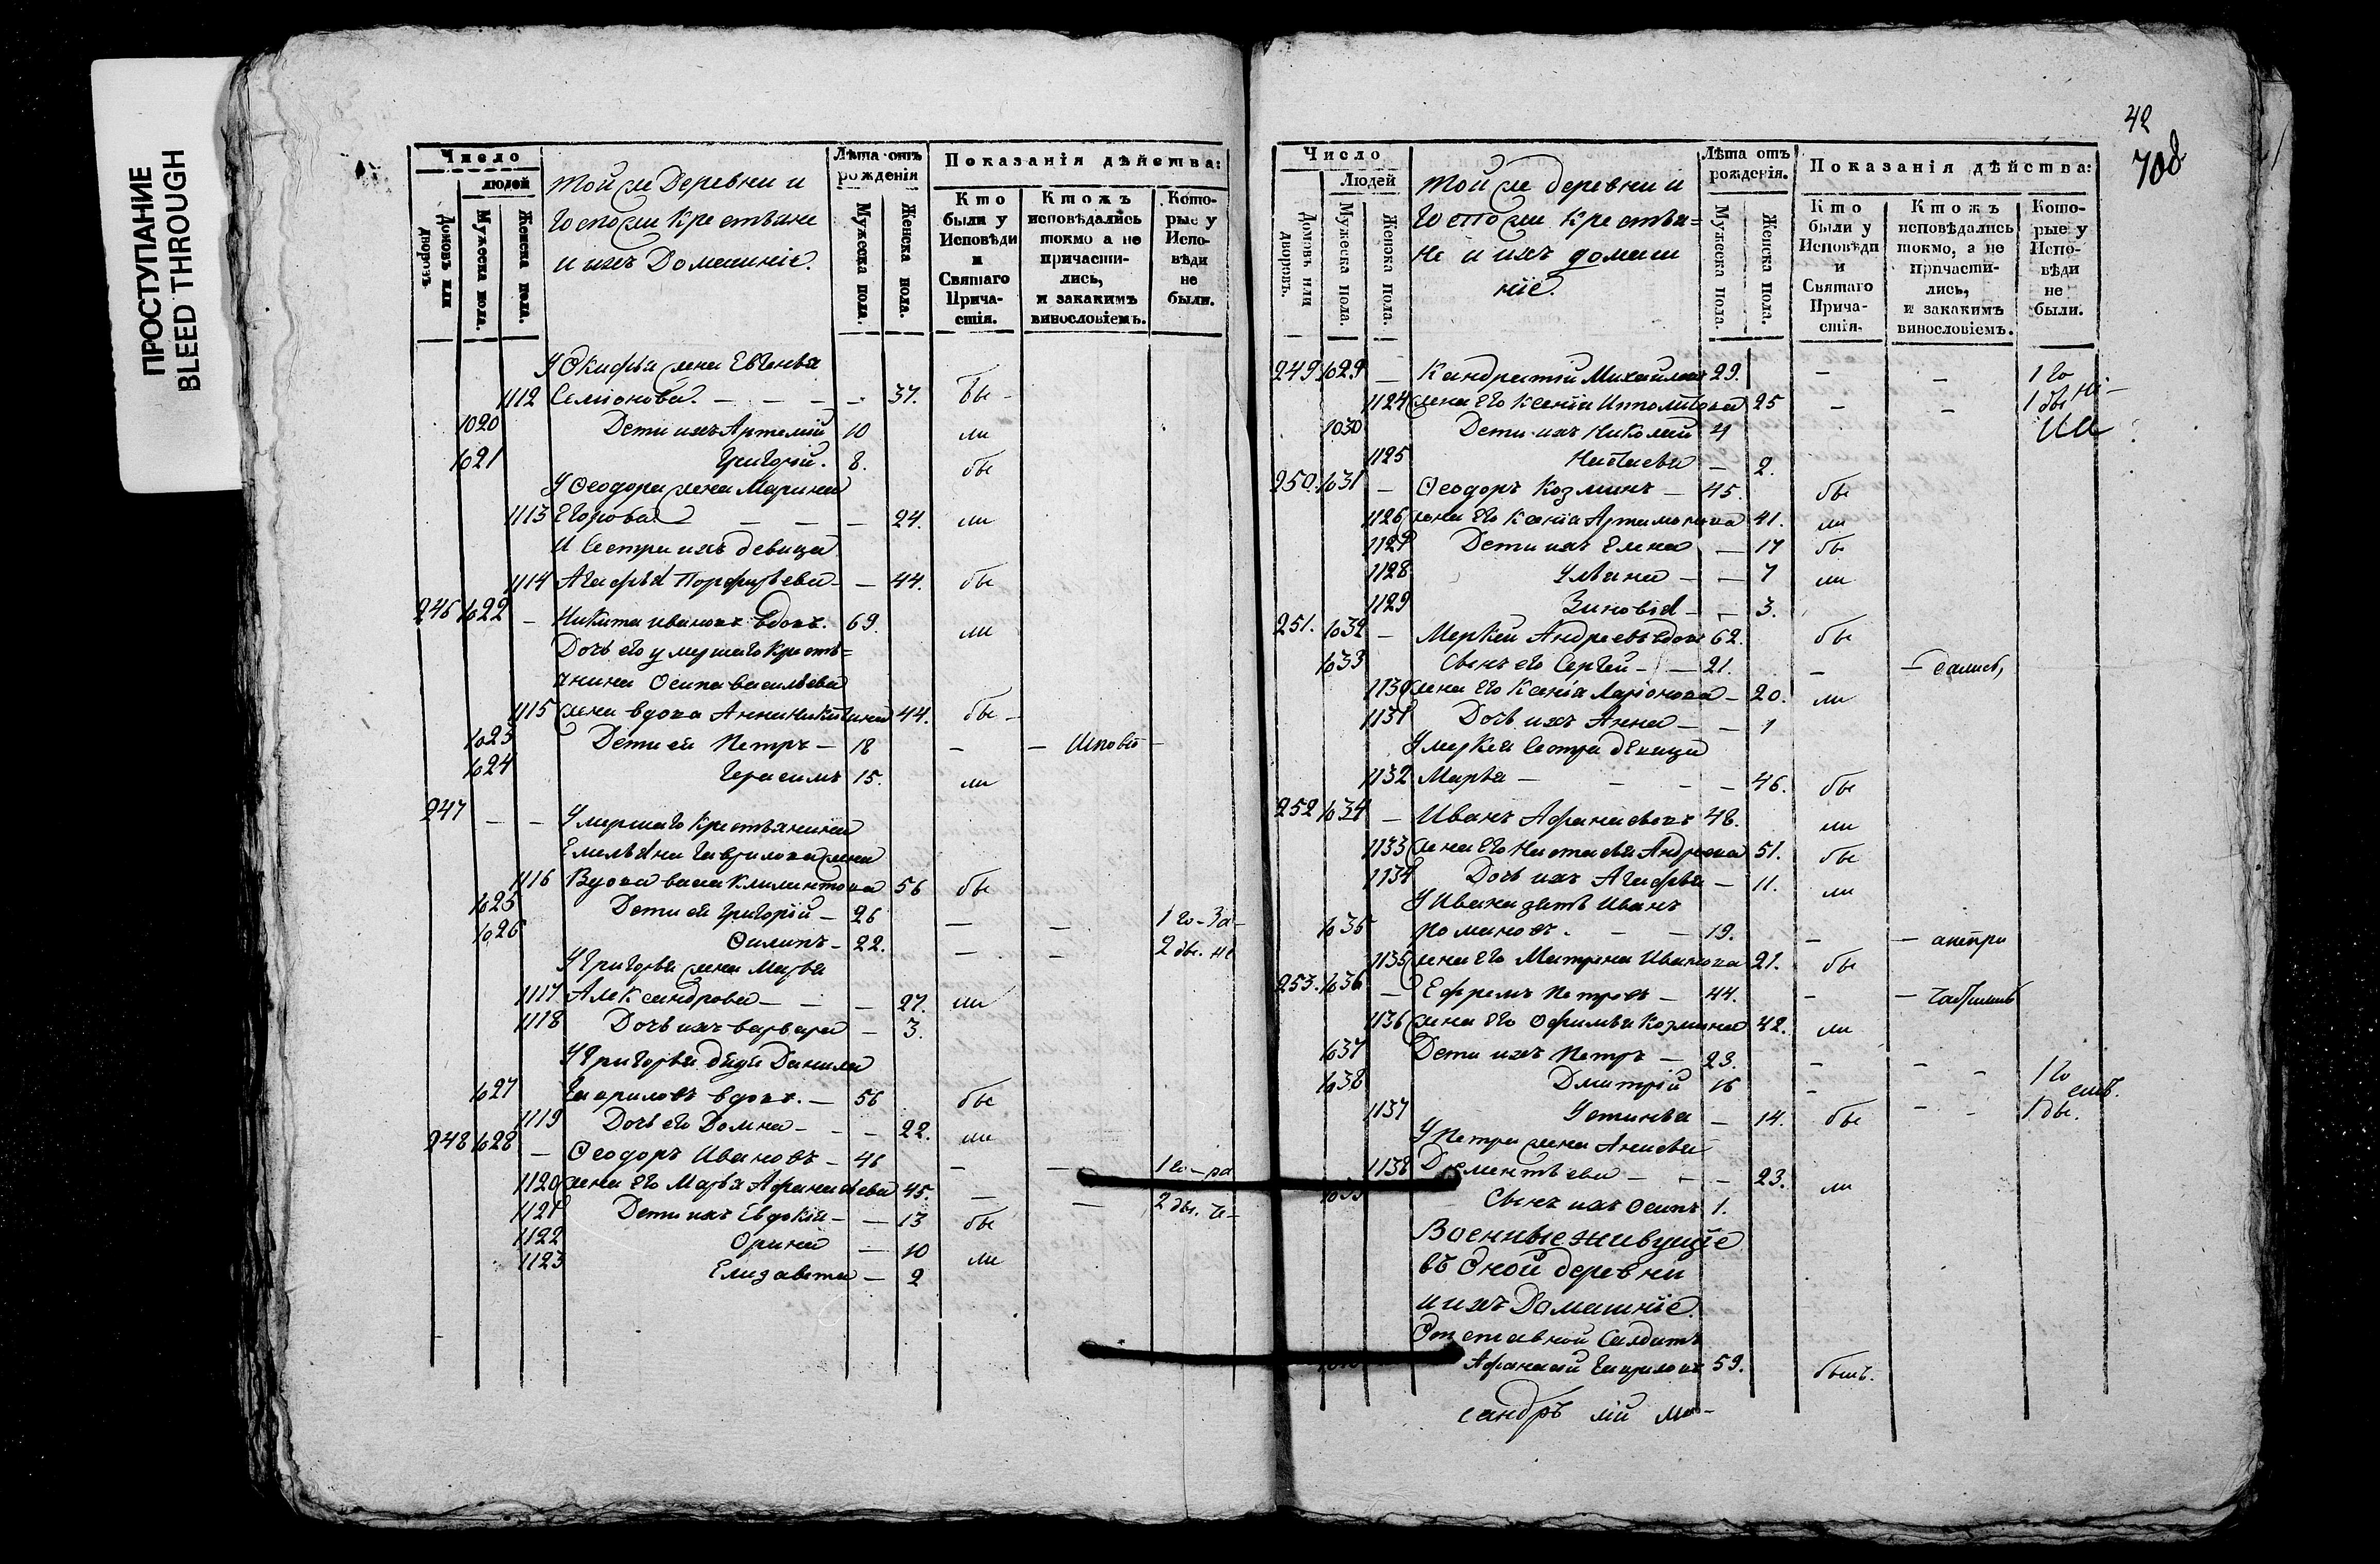 ПРОСТУПАНИЕ
BLEED THROUGH
Число
людей
Домовъ или дворовъ.
Мужеска пола.
Женска пола.
той же Деревни и
Госпожи Крестьяне
и ихъ Домашніе.
Лѣта отъ рожденія
Мужеска пола.
Женска пола.
Показанія дѣйства:
Кто были у Исповѣди и Святаго Причастія.
Ктожъ исповѣдались токмо а не причастились, и закакимъ винословіемъ.
Которые у Исповѣди не были.
У Окифья жена Евгенья
1112 Семіонова. — — — — 37. бы —
1020 Дети ихъ Артемій 10 ли
1021 Григорій. 8. бы
У Ѳеодора жена Марина
1113 Егорова — — — 24. ли
И Сестра ихъ девица
1114 Агафья Порфирьева — — 44. бы
246 1022 — Никита Ивановъ вдовъ. 69. ли
Дочь его умершаго Кресть=
янина Осипа Васильева
1115 жена вдова Анна Никитина 44. бы —
1023 Дети ея Петръ — 18 — — Исповѣ —
1024 Герасимъ 15. ли
247 — — Умершаго Крестьянина
Емельяна Гаврилова жена
1116 Вдова Васа Климентова 56 бы
1025 Дети ея Григорій — 26 — — 1 го — За —
1026 Филипъ — 22. — — 2 бы. не
У Григорья жена Марья
1117 Александрова — — — 27. ли
1118 Дочь ихъ Варвара — 3.
У Григорья дядя Данила
1027 Гавриловъ вдовъ. — 56 бы
1119 Дочь его Домна — — — 22. ли
248 1028 — Ѳеодоръ Ивановъ — 46 — — 1 го — ра
1120 жена Его Марья Афанасьева 45. — — 2 бы. че —
1121 Дети ихъ Евдокія — — 13 бы
1122 Орина — 10 ли
1123 Елизавета — 2
42
708
Число
Людей
Домовъ или дворовъ.
Мужеска пола.
Женска пола.
той же деревни и
Госпожи Крестья=
не и ихъ домаш
ніе.
Лѣта отъ рожденія.
Мужеска пола.
Женска пола.
Показанія дѣйства:
Кто были у Исповѣди и Святаго Причастія.
Ктожъ исповѣдались токмо, а не причастились, и закакимъ винословіемъ.
Которые у Исповѣди не были.
249 1029 — Кандратій Михайловъ 29. — — 1 го
1124 жена Его Ксенія Ипполитова 25 — — 1 бы не —
1030 Дети ихъ Николай 4
1125 Настасья — 2.
250. 1031 — Ѳеодоръ Козминъ — 45. бы
1126 жена Его Ксенія Артамонова 41. ли
1127 Дети ихъ Елена — 17 бы
1128 Ульяна — — 7 ли
1129 Зиновія — — 3.
251. 1032 — Меркей Андреевъ вдовъ 62. бы
1033 Сынъ его Сергей — — 21. — — дались,
1130 жена Его Ксенія Ларіонова — 20. ли
1131 Дочь ихъ Анна — — 1
У меркея Сестра девица
1132 Марья — — — — 46. бы
252 1034 — Иванъ Афанасьевъ 48. ли
1133 жена Его Настасья Андреева 51. бы
1134 Дочь ихъ Агафья — 11. ли
У Ивана зять Иванъ
1035 Романовъ. — — 19. — —
1135 жена Его Матрена Иванова 21. бы
253. 1036 — Ефремъ Петровъ — 44. — —
1136 жена Его Офимья Козмина 42. ли
1037 Дети ихъ Петръ — 23. — — — 1 го
1038 Дмитрій 16 — емъ.
1137 Устинья — 14. бы — — 1 бы.
У Петра жена Анисья
1138 Дементьева — — — 23. ли
1039 Сынъ ихъ Осипъ 1.
Военные живущіе
въ Оной деревни
и ихъ Домашніе.
Отставной Салдатъ
Афанасій Гавриловъ 59. былъ.